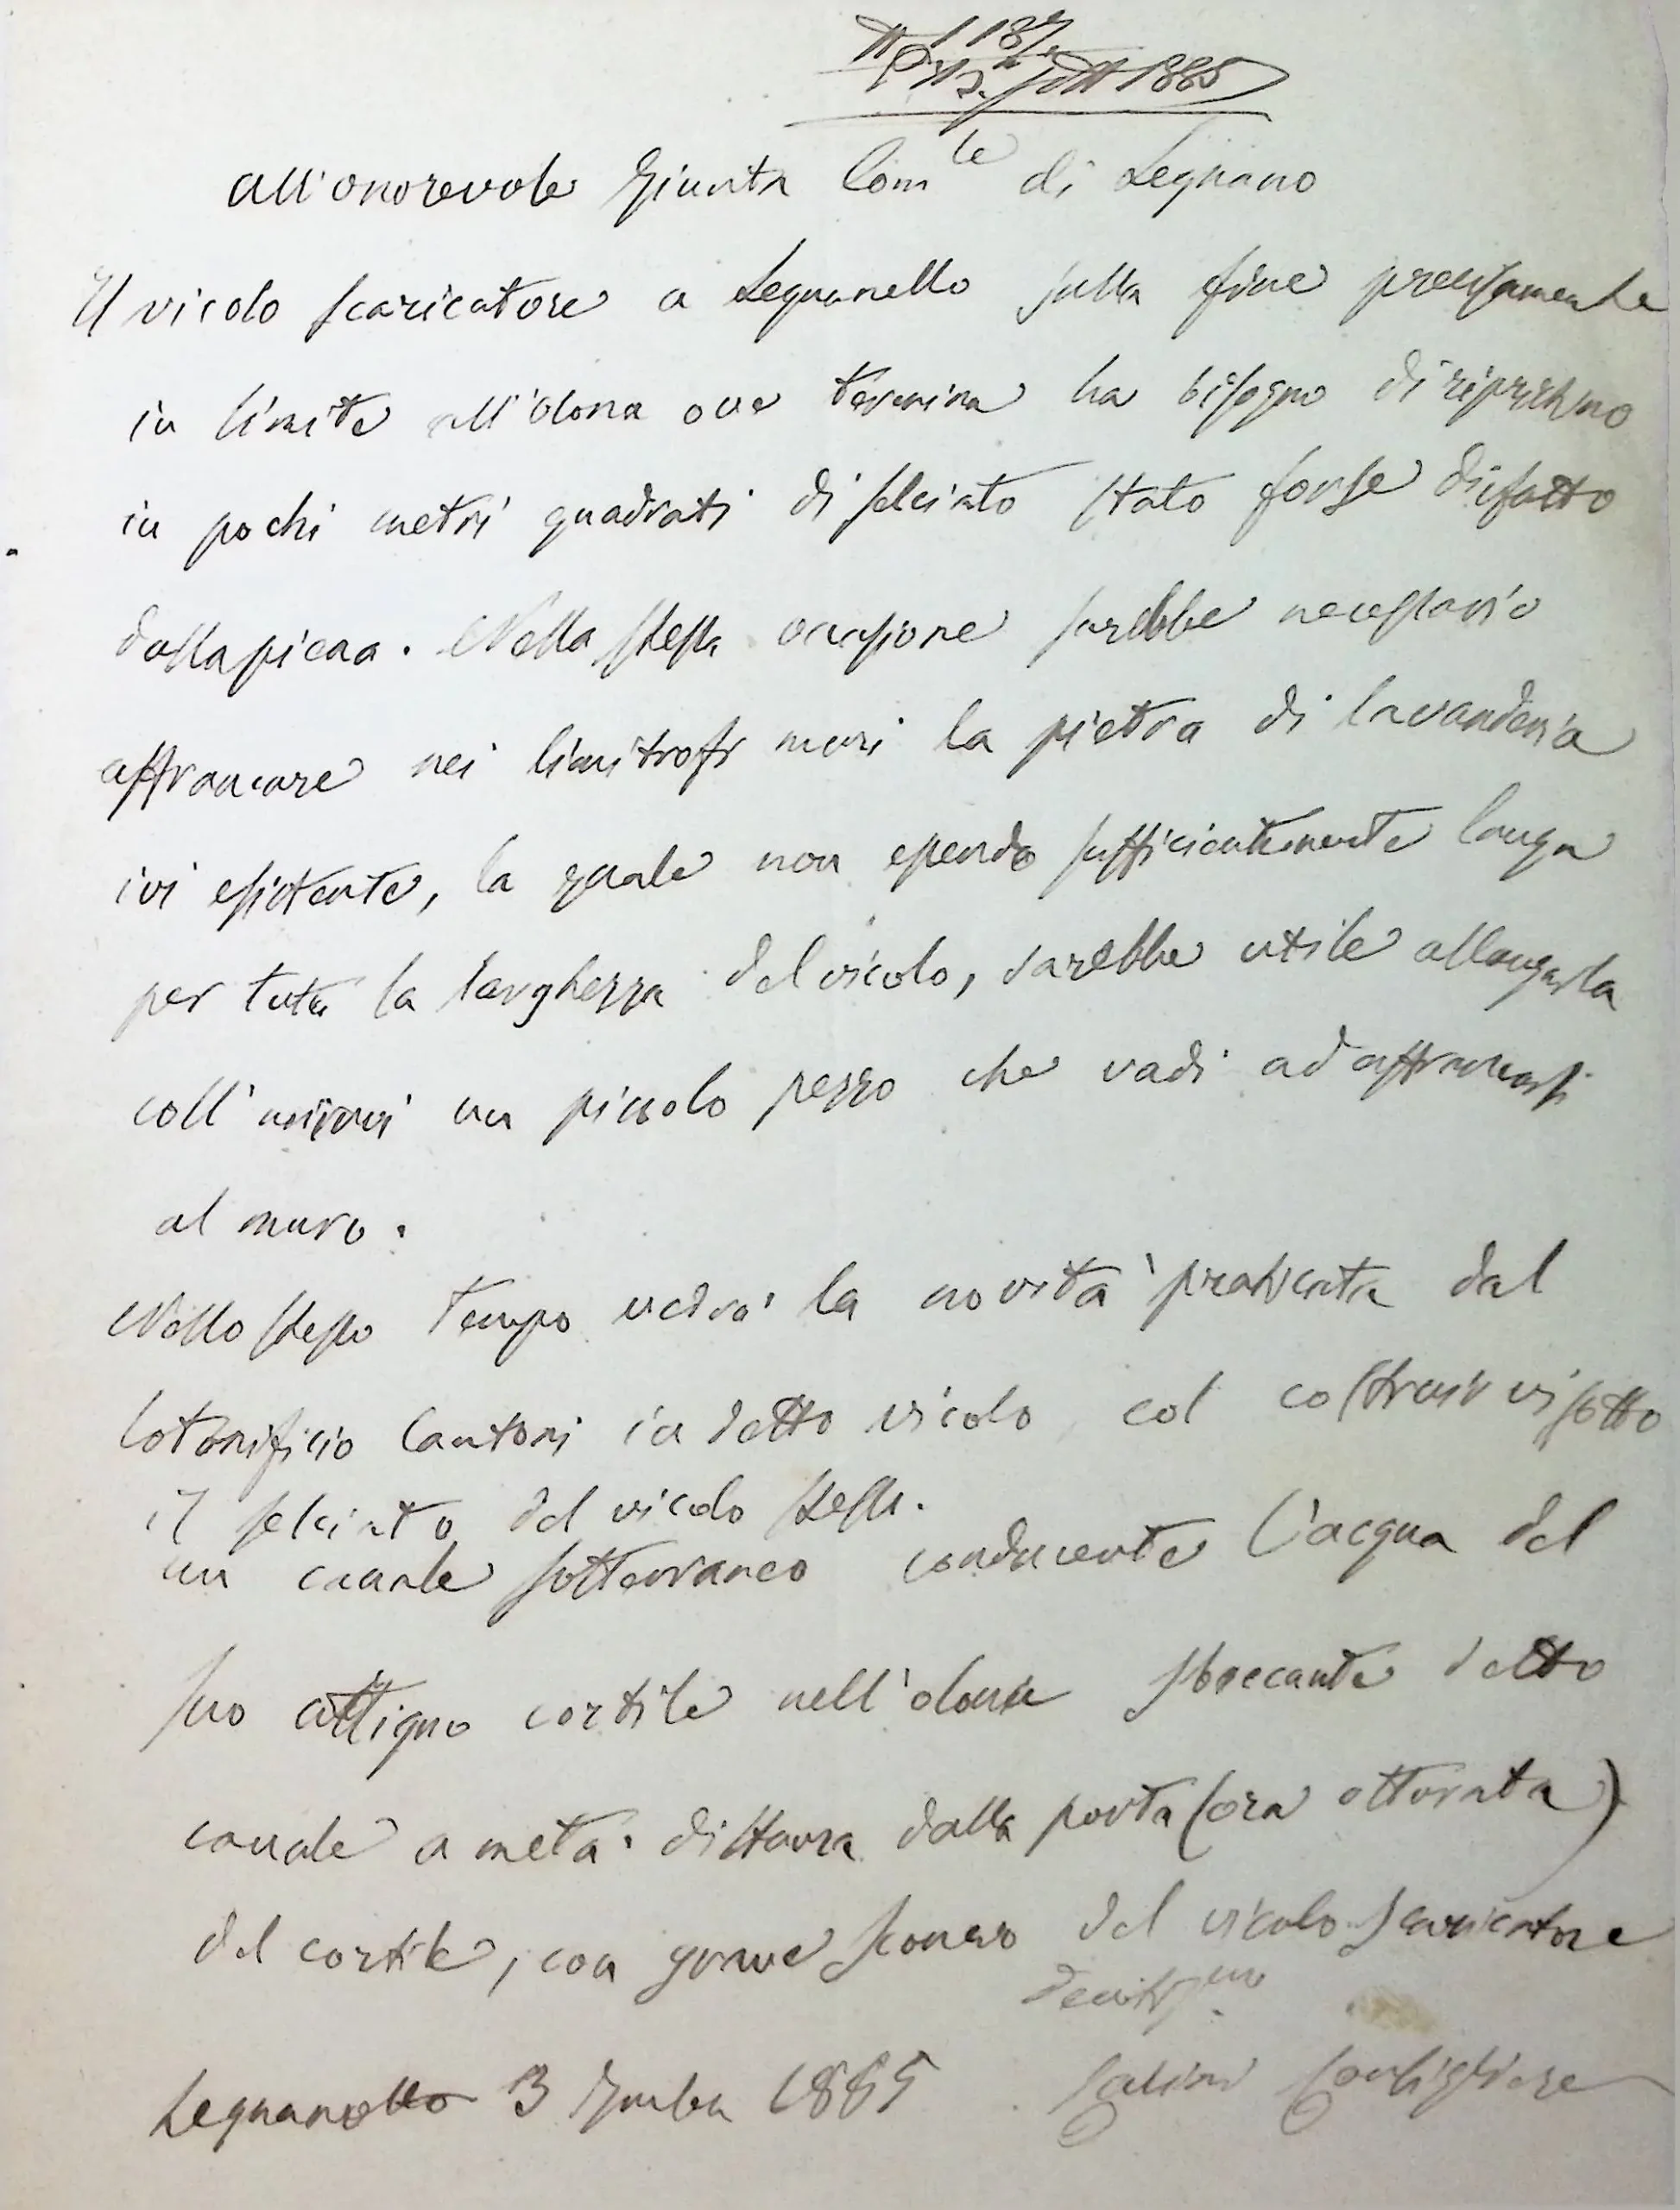 1187
P. 12 Sett 1885
All'onorevole Giunta Com.le di Legnano
Il vicolo scaricatore a Legnanello sulla fine precisamente
in limite all'Olona ove termina ha bisogno di ripristino
in pochi metri quadrati di selciato stato forse disfatto
dalla piena. Nella stessa occasione sarebbe necessario
affrancare nei limitrofi muri la pietra di lavanderia
ivi esistente, la quale non essendo sufficientemente lunga
per tutta la larghezza del vicolo, sarebbe utile allungarla
coll'unirvi un piccolo pezzo che vadi ad affrancarsi
al muro.
Nello stesso tempo vedrà la novità praticata dal
Cotonificio Cantoni in detto vicolo, col costruirvi sotto
il selciato del vicolo stesso.
un canale sotterraneo conducente l'acqua del
suo attiguo cortile nell'Olona sboccante detto
canale a metà distanza dalla porta (ora otturata)
del cortile, con grave sconcio del vicolo scaricatore
Legnanello 3 1885 Consigliere